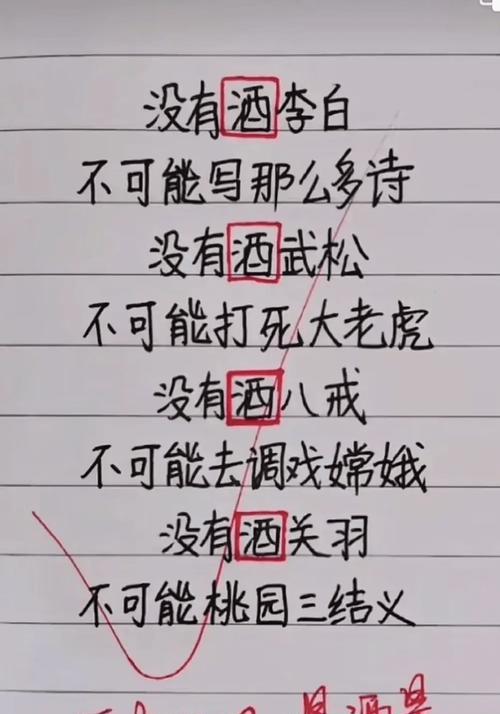 没有酒李白
不可能写那么多诗
没有酒武松
不可能打死大老虎
没有酒八戒
不可能去调戏嫦娥
没有酒关羽
不可能桃园三结义